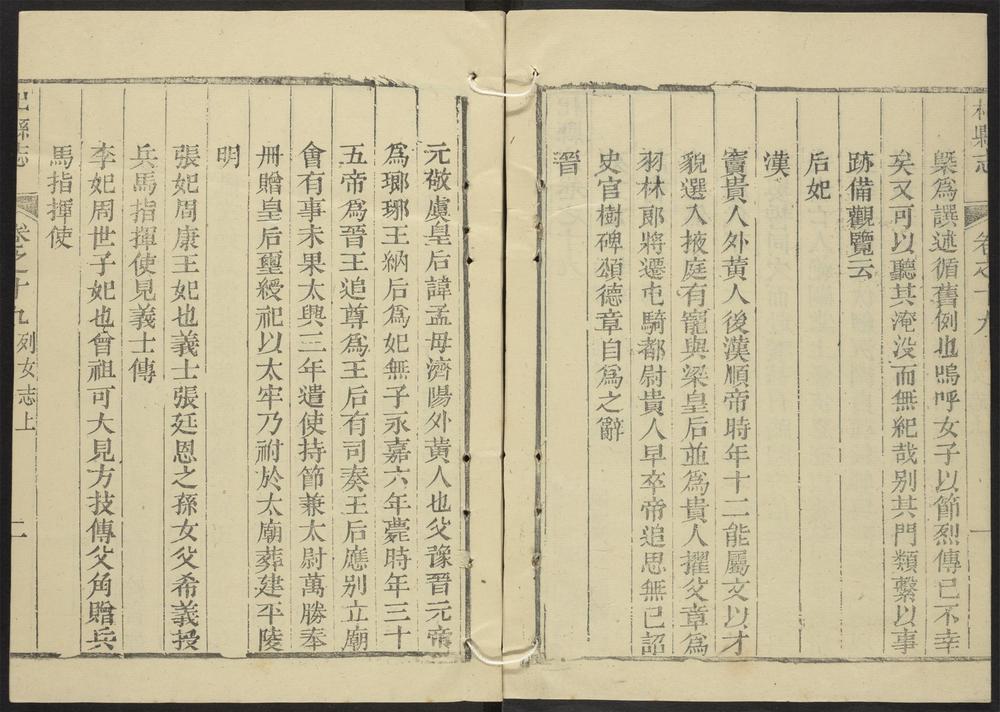 杞縣志 卷之十九
槩為譔述循舊例也嗚呼女子以節烈傳已不幸
矣又可以聽其淹没而無紀哉别其門類繫以事
跡備觀覽云
后妃
漢
竇貴人外黃人後漢順帝時年十二能屬文以才
貌選入掖庭有寵與梁皇后並為貴人擢父章為
羽林郎將遷屯騎都尉貴人早卒帝追思無已詔
史官樹碑頌德章自為之辭
晉
元敬虞皇后諱孟母濟陽外黃人也父豫晉元帝
為瑯琊王納后為妃無子永嘉六年薨時年三十
五帝為晉王追尊為王后有司奏王后應别立廟
會有事未果太興三年遣使持節兼太尉萬勝奉
冊贈皇后璽綬祀以太牢乃祔於太廟葬建平陵
明
張妃周康王妃也義士張廷恩之孫女父希義授
兵馬指揮使見義士傳
李妃周世子妃也曾祖可大見方技傳父角贈兵
馬指揮使
杞縣志 卷之十九 列女志上 二